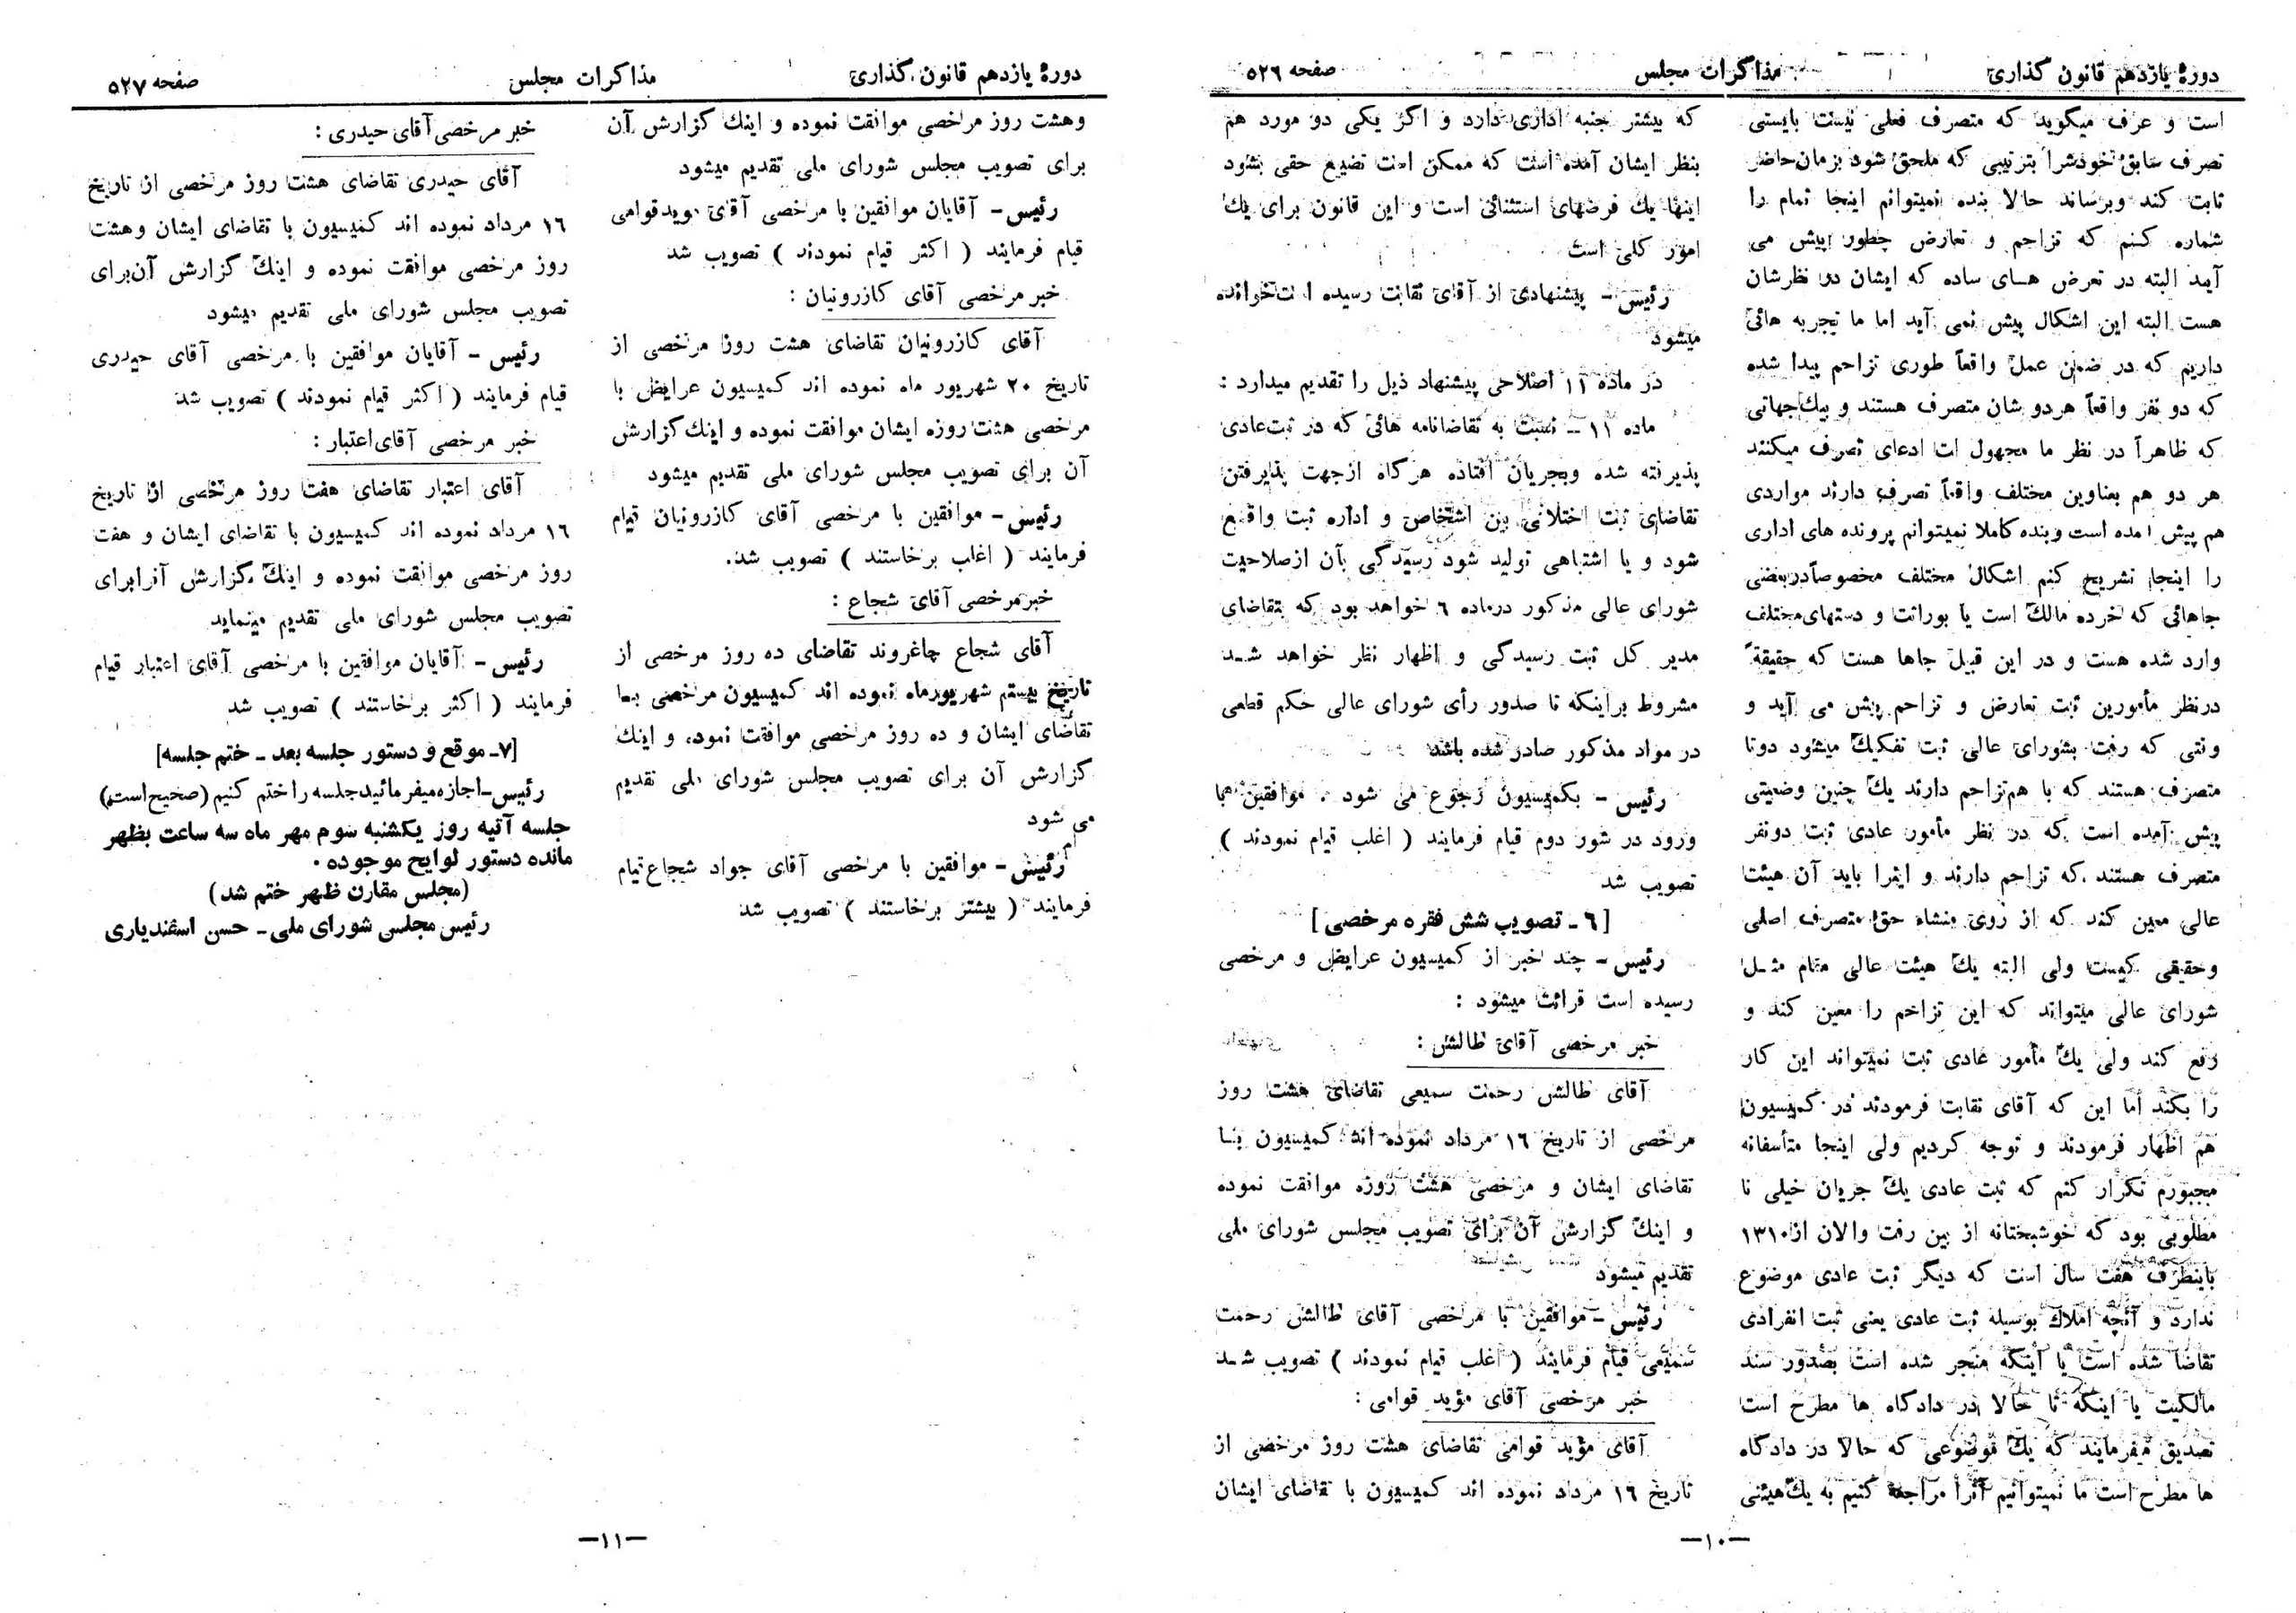 دورهٔ یازدهم قانون گذاری
مذاکرات مجلس
صفحه ۵۲۶
است و عرف میگوید که متصرف فعلی نیست بایستی
تصرف سابق خودش را بترتیبی که ملحق شود بزمان حاضر
ثابت کند وبرساند حالا بنده نمیتوانم اینجا تمام را
شماره کنم که تزاحم و تعارض چطور پیش می
آید البته در تعرض های ساده که ایشان در نظرشان
هست البته این اشکال پیش نمی آید اما ما تجربه هائی
داریم که در ضمن عمل واقعاً طوری تزاحم پیدا شده
که دو نفر واقعاً هردو شان متصرف هستند و بیك جهاتی
که ظاهراً در نظر ما مجهول است ادعای تصرف میکنند
هر دو هم بعناوین مختلف واقعاً تصرف دارند مواردی
هم پیش آمده است وبنده کاملا نمیتوانم پرونده های اداری
را اینجا تشریح کنم اشکال مختلف مخصوصاً دربعضی
جاهائی که خرده مالك است یا بوراثت و دستهای مختلف
وارد شده هست و در این قبیل جاها هست که حقیقةً
درنظر مأمورین ثبت تعارض و تزاحم پیش می آید و
وقتی که رفت بشورای عالی ثبت تفکیك میشود دوتا
متصرف هستند که با هم تزاحم دارند یك چنین وضعیتی
پیش آمده است که در نظر مأمور عادی ثبت دونفر
متصرف هستند که تزاحم دارند و اینرا باید آن هیئت
عالی معین کند که از روی منشاء حق متصرف اصلی
وحقیقی کیست ولی البته یك هیئت عالی مقام مثل
شورای عالی میتواند که این تزاحم را معین کند و
رفع کند ولی یك مأمور عادی ثبت نمیتواند این کار
را بکند اما این که آقای نقابت فرمودند در کمیسیون
هم اظهار فرمودند و توجه کردیم ولی اینجا متأسفانه
مجبورم تکرار کنم که ثبت عادی یك جریان خیلی نا
مطلوبی بود که خوشبختانه از بین رفت والان از ۱۳۱۰
باینطرف هفت سال است که دیگر ثبت عادی موضوع
ندارد و آنچه املاك بوسیله ثبت عادی یعنی ثبت انفرادی
تقاضا شده است یا اینکه منجر شده است بصدور سند
مالکیت یا اینکه تا حالا در دادگاه ها مطرح است
تصدیق میفرمایند که یك موضوعی که حالا در دادگاه
ها مطرح است ما نمیتوانیم آنرا مراجعه کنیم به یك هیئتی
که بیشتر جنبه اداری دارد و اگر یکی دو مورد هم
بنظر ایشان آمده است که ممکن است تضییع حقی بشود
اینها یك فرضهای استثنائی است و این قانون برای یك
امور کلی است
رئیس - پیشنهادی از آقای نقابت رسیده است خوانده
میشود
در ماده ۱۱ اصلاحی پیشنهاد ذیل را تقدیم میدارد :
ماده ۱۱ ـ نسبت به تقاضانامه هائی که در ثبت عادی
پذیرفته شده وبجریان افتاده هرگاه ازجهت پذیرفتن
تقاضای ثبت اختلافی بین اشخاص و اداره ثبت واقع
شود و یا اشتباهی تولید شود رسیدگی بآن ازصلاحیت
شورای عالی مذکور درماده ٦ خواهد بود که بتقاضای
مدیر کل ثبت رسیدگی و اظهار نظر خواهد شد
مشروط براینکه تا صدور رأی شورای عالی حکم قطعی
در مواد مذکور صادر شده باشد
رئیس - بکمیسیون رجوع می شود . موافقین با
ورود در شور دوم قیام فرمایند ( اغلب قیام نمودند )
تصویب شد
[ ٦ ـ تصویب شش فقره مرخصی ]
رئیس - چند خبر از کمیسیون عرایض و مرخصی
رسیده است قرائت میشود :
خبر مرخصی آقای طالش :
آقای طالش رحمت سمیعی تقاضای هشت روز
مرخصی از تاریخ ۱٦ مرداد نموده اند کمیسیون با
تقاضای ایشان و مرخصی هشت روزه موافقت نموده
و اینك گزارش آن برای تصویب مجلس شورای ملی
تقدیم میشود
رئیس - موافقین با مرخصی آقای طالش رحمت
سمیعی قیام فرمایند ( اغلب قیام نمودند ) تصویب شد
خبر مرخصی آقای مؤید قوامی :
آقای مؤید قوامی تقاضای هشت روز مرخصی از
تاریخ ۱٦ مرداد نموده اند کمیسیون با تقاضای ایشان
—۱۰—
دورهٔ یازدهم قانون گذاری
مذاکرات مجلس
صفحه ۵۲۷
وهشت روز مرخصی موافقت نموده و اینك گزارش آن
برای تصویب مجلس شورای ملی تقدیم میشود
رئیس - آقایان موافقین با مرخصی آقای مویدقوامی
قیام فرمایند ( اکثر قیام نمودند ) تصویب شد
خبر مرخصی آقای کازرونیان :
آقای کازرونیان تقاضای هشت روز مرخصی از
تاریخ ۲۰ شهریور ماه نموده اند کمیسیون عرایض با
مرخصی هشت روزه ایشان موافقت نموده و اینك گزارش
آن برای تصویب مجلس شورای ملی تقدیم میشود
رئیس - موافقین با مرخصی آقای کازرونیان قیام
فرمایند ( اغلب برخاستند ) تصویب شد.
خبرمرخصی آقای شجاع :
آقای شجاع چاغروند تقاضای ده روز مرخصی از
تاریخ بیستم شهریورماه نموده اند کمیسیون مرخصی با
تقاضای ایشان و ده روز مرخصی موافقت نموده و اینك
گزارش آن برای تصویب مجلس شورای ملی تقدیم
می شود
رئیس - موافقین با مرخصی آقای جواد شجاع قیام
فرمایند ( بیشتر برخاستند ) تصویب شد
خبر مرخصی آقای حیدری :
آقای حیدری تقاضای هشت روز مرخصی از تاریخ
۱٦ مرداد نموده اند کمیسیون با تقاضای ایشان وهشت
روز مرخصی موافقت نموده و اینك گزارش آن برای
تصویب مجلس شورای ملی تقدیم میشود
رئیس - آقایان موافقین با مرخصی آقای حیدری
قیام فرمایند ( اکثر قیام نمودند ) تصویب شد
خبر مرخصی آقای اعتبار :
آقای اعتبار تقاضای هفت روز مرخصی از تاریخ
۱٦ مرداد نموده اند کمیسیون با تقاضای ایشان و هفت
روز مرخصی موافقت نموده و اینك گزارش آنرا برای
تصویب مجلس شورای ملی تقدیم مینماید
رئیس - آقایان موافقین با مرخصی آقای اعتبار قیام
فرمایند ( اکثر برخاستند ) تصویب شد
[۷ـ موقع و دستور جلسه بعد ـ ختم جلسه]
رئیس-اجازه میفرمائید جلسه را ختم کنیم (صحیح است)
جلسه آتیه روز یکشنبه سوم مهر ماه سه ساعت بظهر
مانده دستور لوایح موجوده .
(مجلس مقارن ظهر ختم شد)
رئیس مجلس شورای ملی ـ حسن اسفندیاری
—۱۱—